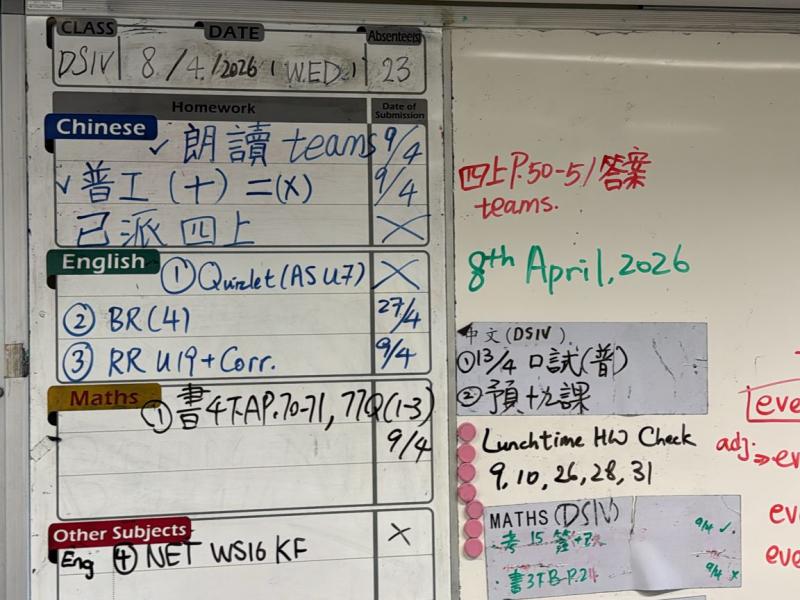 CLASS DATE Absentee(s)
DSIV 8/4/2026 (WED.) 23
Homework Date of Submission
Chinese ✓ 朗讀 teams 9/4
✓ 普工(十)二(x) 9/4
已派四上 X
English ① Quizlet (AS U7) X
② BR(4) 27/4
③ RR U19 + Corr. 9/4
Maths ① 書4下A P.70-71, 77Q(1-3)
9/4
Other Subjects X
Eng ④ NET WS16 KF
四上P.50-51答案
teams.
8th April, 2026
中文(DSIV)
①13/4 口試(普)
②預十九課
Lunchtime HW Check
9, 10, 26, 28, 31
MATHS (DSIV)
考 15 9/4 ✓.
書3下B P.2 9/4 x
eve
adj.
eve
eve